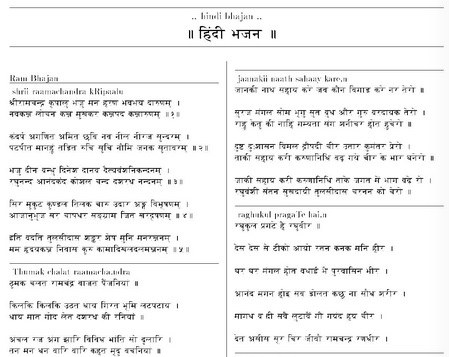 .. hindi bhajan ..
॥ हिंदी भजन ॥
Ram Bhajan
shrii raamachandra kRipaalu
श्रीरामचन्द्र कृपालु भजु मन हरण भवभय दारुणम् ।
नवकञ्ज लोचन कञ्ज मुखकर कञ्जपद कञ्जारुणम् ॥१॥
कंदर्प अगणित अमित छबि नव नील नीरज सुन्दरम् ।
पटपीत मानहुं तड़ित रुचि सुचि नौमि जनक सुतावरम् ॥२॥
भजु दीन बन्धु दिनेश दानव दैत्यवंशनिकन्दनम् ।
रघुनन्द आनंदकंद कोशल चन्द दशरथ नन्दनम् ॥३॥
सिर मुकुट कुण्डल तिलक चारु उदार अङ्ग विभूषणम् ।
आजानुभुज सर चापधर सङ्ग्राम जित खरदूषणम् ॥४॥
इति वदति तुलसीदास शङ्कर शेष मुनि मनरञ्जनम् ।
मम हृदयकञ्ज निवास कुरु कामादिखलदलमञ्जनम् ॥५॥
Thumak chalat raamacha.ndra
ठुमक चलत रामचंद्र बाजत पैंजनियां ।
किलकि किलकि उठत धाय गिरत भूमि लटपटाय ।
धाय मात गोद लेत दशरथ की रनियां ।
अचल रज अंग झारि विविध भांति सो दुलारि ।
तन मन धन वारि वारि कहत मृदु बचनियां ।
jaanakii naath sahaay kare.n
जानकी नाथ सहाय करें जब कौन बिगाड़ करे नर तेरो ।
सुरज मंगल सोम भृगु सुत बुध और गुरु वरदायक तेरो ।
राहु केतु की नाहिं गम्यता संग शनीचर होत हुचेरो ।
दुष्ट दुःशासन विमल द्रौपदी चीर उतार कुमंतर प्रेरो ।
ताकी सहाय करी करुणानिधि बढ़ गये चीर के भार घनेरो ।
जाकी सहाय करी करुणानिधि ताके जगत में भाग बढ़े रो ।
रघुवंशी संतन सुखदायी तुलसीदास चरनन को चेरो ।
raghukul pragaTe hai.n
रघुकुल प्रगटे हैं रघुबीर ।
देस देस से टीको आयो रतन कनक मनि हीर ।
घर घर मंगल होत बधाई भै पुरवासिन भीर ।
आनंद मगन होइ सब डोलत कछु ना सौध शरीर ।
मागध बंदी सबै लुटावैं गौ गयंद हय चीर ।
देत असीस सूर चिर जीवौ रामचन्द्र रणधीर ।